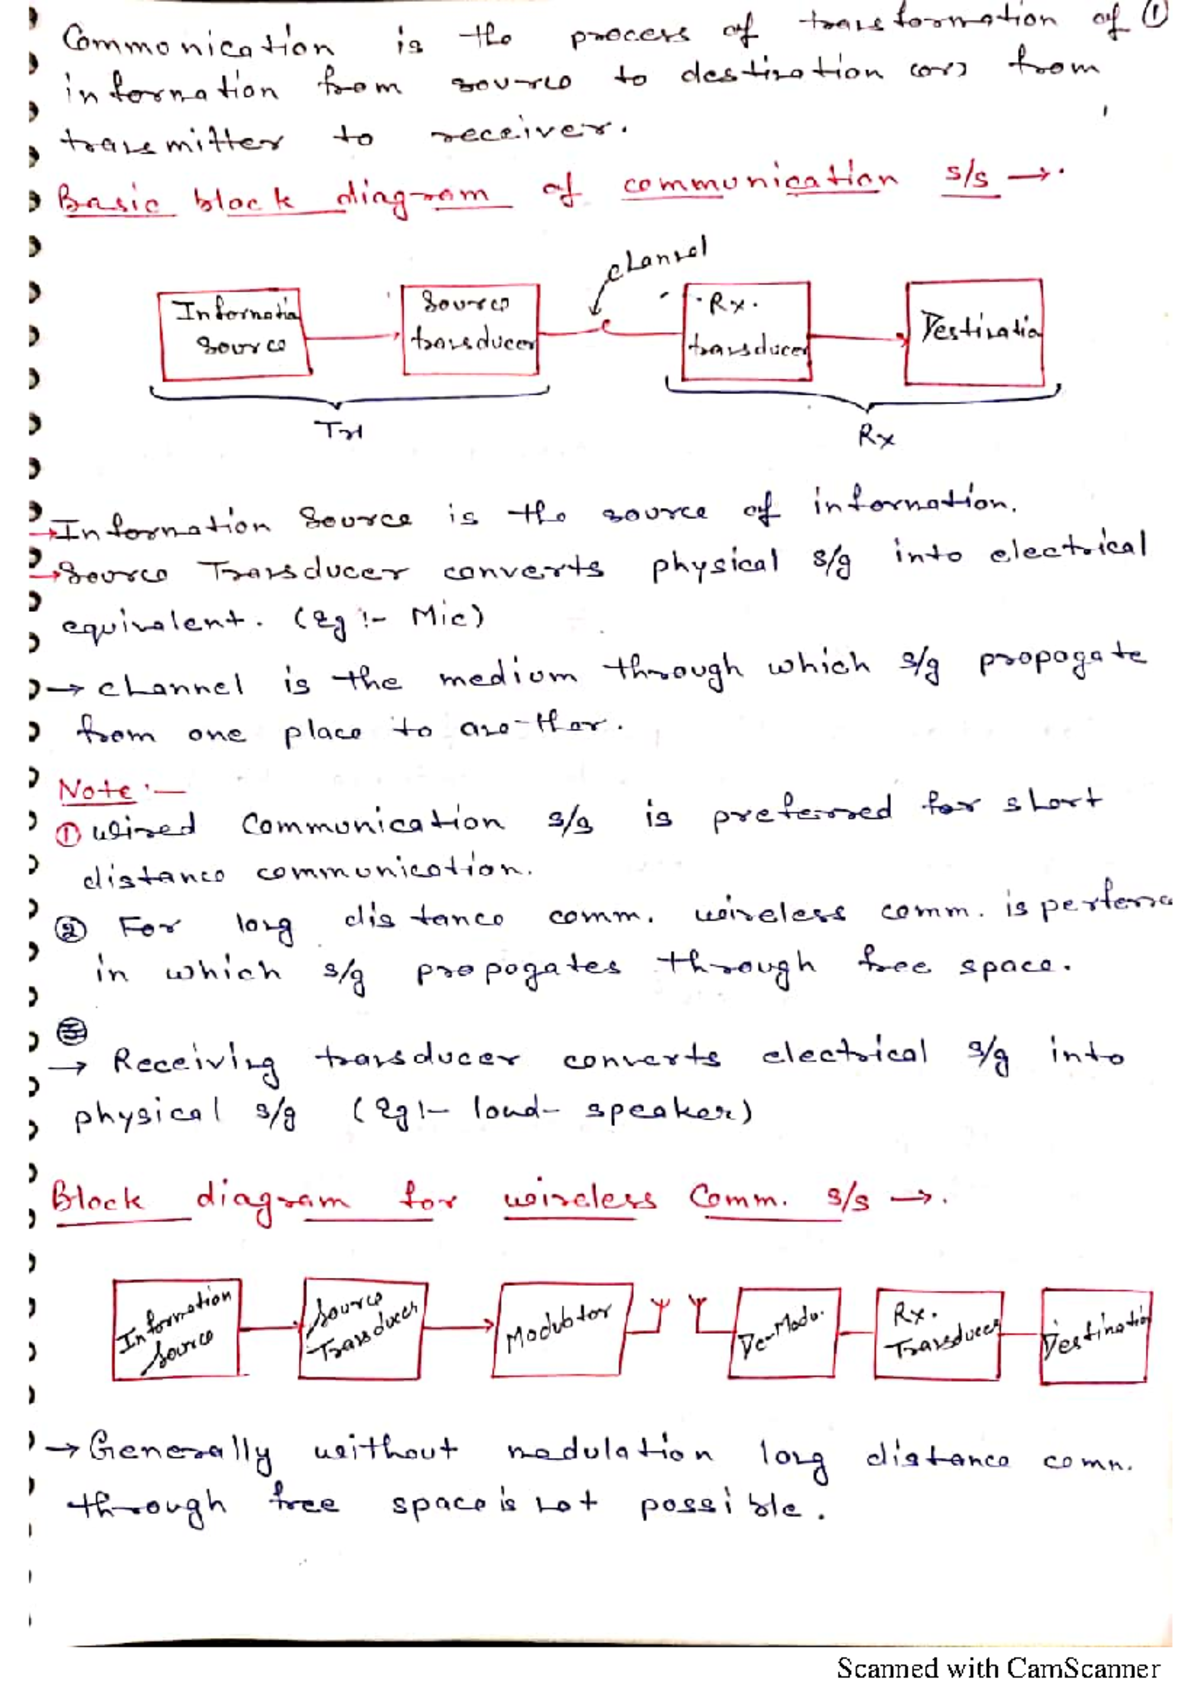 Communication is the process of transformation of ①
information from source to destination (or) from
transmitter to receiver.
Basic block diagram of communication s/s →.
channel
Information Source
Source transducer
Rx. transducer
Destinatio
Tx
Rx
→ Information Source is the source of information.
→ Source Transducer converts physical s/g into electrical
equivalent. (Eg :- Mic)
→ channel is the medium through which s/g propogate
from one place to another.
Note :-
① wired Communication s/s is preferred for short
distance communication.
② For long distance comm. wireless comm. is perferre
in which s/g propogates through free space.
→ Receiving transducer converts electrical s/g into
physical s/g (Eg :- loud-speaker)
Block diagram for wireless Comm. s/s →.
Information Source
Source Transducer
Modulator
De-Modu.
Rx. Transducer
Destination
→ Generally without modulation long distance comm.
through free space is not possible.
Scanned with CamScanner